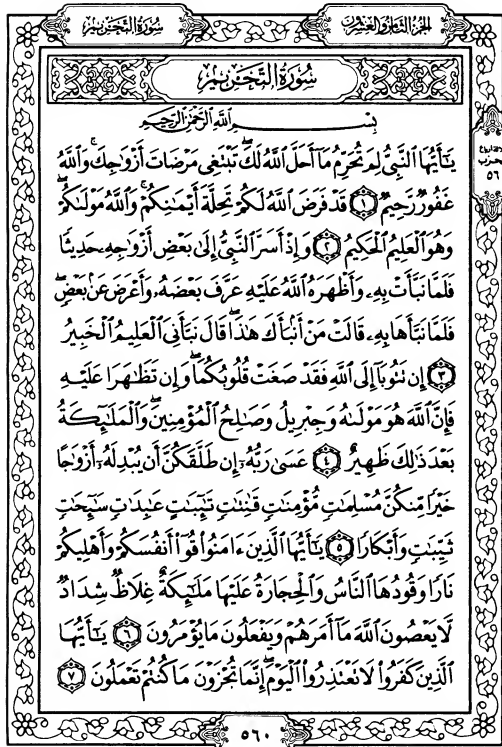 سُورَةُ التَّحْرِيمِ
الجُزْءُ الثَّامِنُ وَالعِشْرُونَ
سُورَةُ التَّحْرِيمِ
بِسْمِ اللَّهِ الرَّحْمَٰنِ الرَّحِيمِ
يَٰٓأَيُّهَا ٱلنَّبِىُّ لِمَ تُحَرِّمُ مَآ أَحَلَّ ٱللَّهُ لَكَۖ تَبْتَغِى مَرْضَاتَ أَزْوَٰجِكَۚ وَٱللَّهُ
غَفُورٌ رَّحِيمٌ ١ قَدْ فَرَضَ ٱللَّهُ لَكُمْ تَحِلَّةَ أَيْمَٰنِكُمْۚ وَٱللَّهُ مَوْلَىٰكُمْۖ
وَهُوَ ٱلْعَلِيمُ ٱلْحَكِيمُ ٢ وَإِذْ أَسَرَّ ٱلنَّبِىُّ إِلَىٰ بَعْضِ أَزْوَٰجِهِۦ حَدِيثًا
فَلَمَّا نَبَّأَتْ بِهِۦ وَأَظْهَرَهُ ٱللَّهُ عَلَيْهِ عَرَّفَ بَعْضَهُۥ وَأَعْرَضَ عَنۢ بَعْضٍۖ
فَلَمَّا نَبَّأَهَا بِهِۦ قَالَتْ مَنْ أَنۢبَأَكَ هَٰذَاۖ قَالَ نَبَّأَنِىَ ٱلْعَلِيمُ ٱلْخَبِيرُ
٣ إِن تَتُوبَآ إِلَى ٱللَّهِ فَقَدْ صَغَتْ قُلُوبُكُمَاۖ وَإِن تَظَٰهَرَا عَلَيْهِ
فَإِنَّ ٱللَّهَ هُوَ مَوْلَىٰهُ وَجِبْرِيلُ وَصَٰلِحُ ٱلْمُؤْمِنِينَۖ وَٱلْمَلَٰٓئِكَةُ
بَعْدَ ذَٰلِكَ ظَهِيرٌ ٤ عَسَىٰ رَبُّهُۥٓ إِن طَلَّقَكُنَّ أَن يُبْدِلَهُۥٓ أَزْوَٰجًا
خَيْرًا مِّنكُنَّ مُسْلِمَٰتٍ مُّؤْمِنَٰتٍ قَٰنِتَٰتٍ تَٰٓئِبَٰتٍ عَٰبِدَٰتٍ سَٰٓئِحَٰتٍ
ثَيِّبَٰتٍ وَأَبْكَارًا ٥ يَٰٓأَيُّهَا ٱلَّذِينَ ءَامَنُوا۟ قُوٓا۟ أَنفُسَكُمْ وَأَهْلِيكُمْ
نَارًا وَقُودُهَا ٱلنَّاسُ وَٱلْحِجَارَةُ عَلَيْهَا مَلَٰٓئِكَةٌ غِلَاظٌ شِدَادٌ
لَّا يَعْصُونَ ٱللَّهَ مَآ أَمَرَهُمْ وَيَفْعَلُونَ مَا يُؤْمَرُونَ ٦ يَٰٓأَيُّهَا
ٱلَّذِينَ كَفَرُوا۟ لَا تَعْتَذِرُوا۟ ٱلْيَوْمَۖ إِنَّمَا تُجْزَوْنَ مَا كُنتُمْ تَعْمَلُونَ ٧
٥٦
٥٦٠